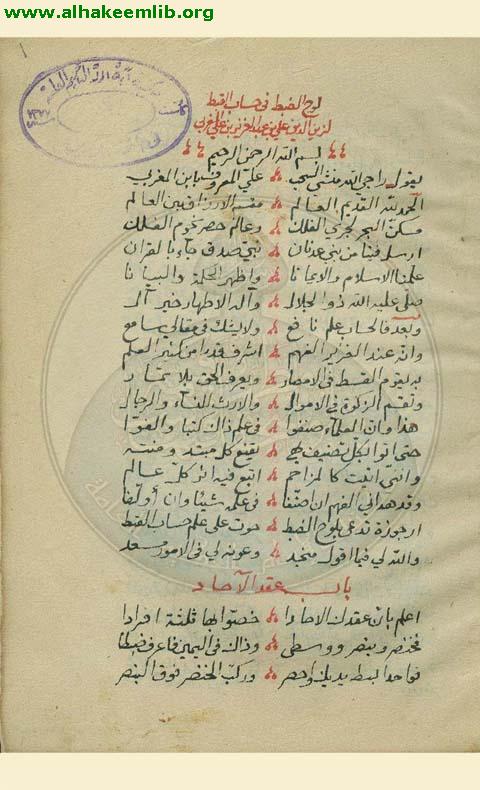 www.alhakeemlib.org
لوح الضبط في حساب القبط
لزين الدين علي بن عبد العزيز بن علي المغربي
بسم الله الرحمن الرحيم
يقول راجي الله منشي السحب علي المعروف بابن المغربي
الحمد لله القديم العالم مقسم الارزاق بين العالم
مسكن البحر لجري الفلك وعالم حصر نجوم الفلك
ارسل فينا من بني عدنان نبي صدق جاءنا لقران
علمنا الاسلام والايمانا واظهر الحكمة والبيانا
صلى عليه الله ذو الجلال وآله الاطهار خير آل
وبعد فالحساب علم نافع ولا يشك في مقالي سامع
وانه عند الغزير الفهم اشرف قدرا من كثير العلم
به يقوم القسط في الامصار ويعرف الحق بلا تمار
وتقسم الزكوة في الاموال والارث للنساء والرجال
هذا وان العلماء صنفوا في علم ذاك كتبا والفوا
حتى اتوا بكل تصنيف بهي يقنع كل مبتد ومنته
وانني اتيت كالمزاحم اتبع فيه اثر كل عالم
وقد هداني الفهم ان اصنفا في علمه شيئا وان اؤلفا
ارجوزة تدعى بلوح الضبط حوت على علم حساب القبط
والله لي فيما اقول منجد وعونه لي في الامور مسعد
باب عقد الآحاد
اعلم بان عقدك الاحادا خصوا بها ثلثة افرادا
فخنصر وبنصر ووسطى وذاك في اليمين فاعرف ضبطا
فواحدا ابسط يديك واحصر وركب الخنصر فوق البنصر